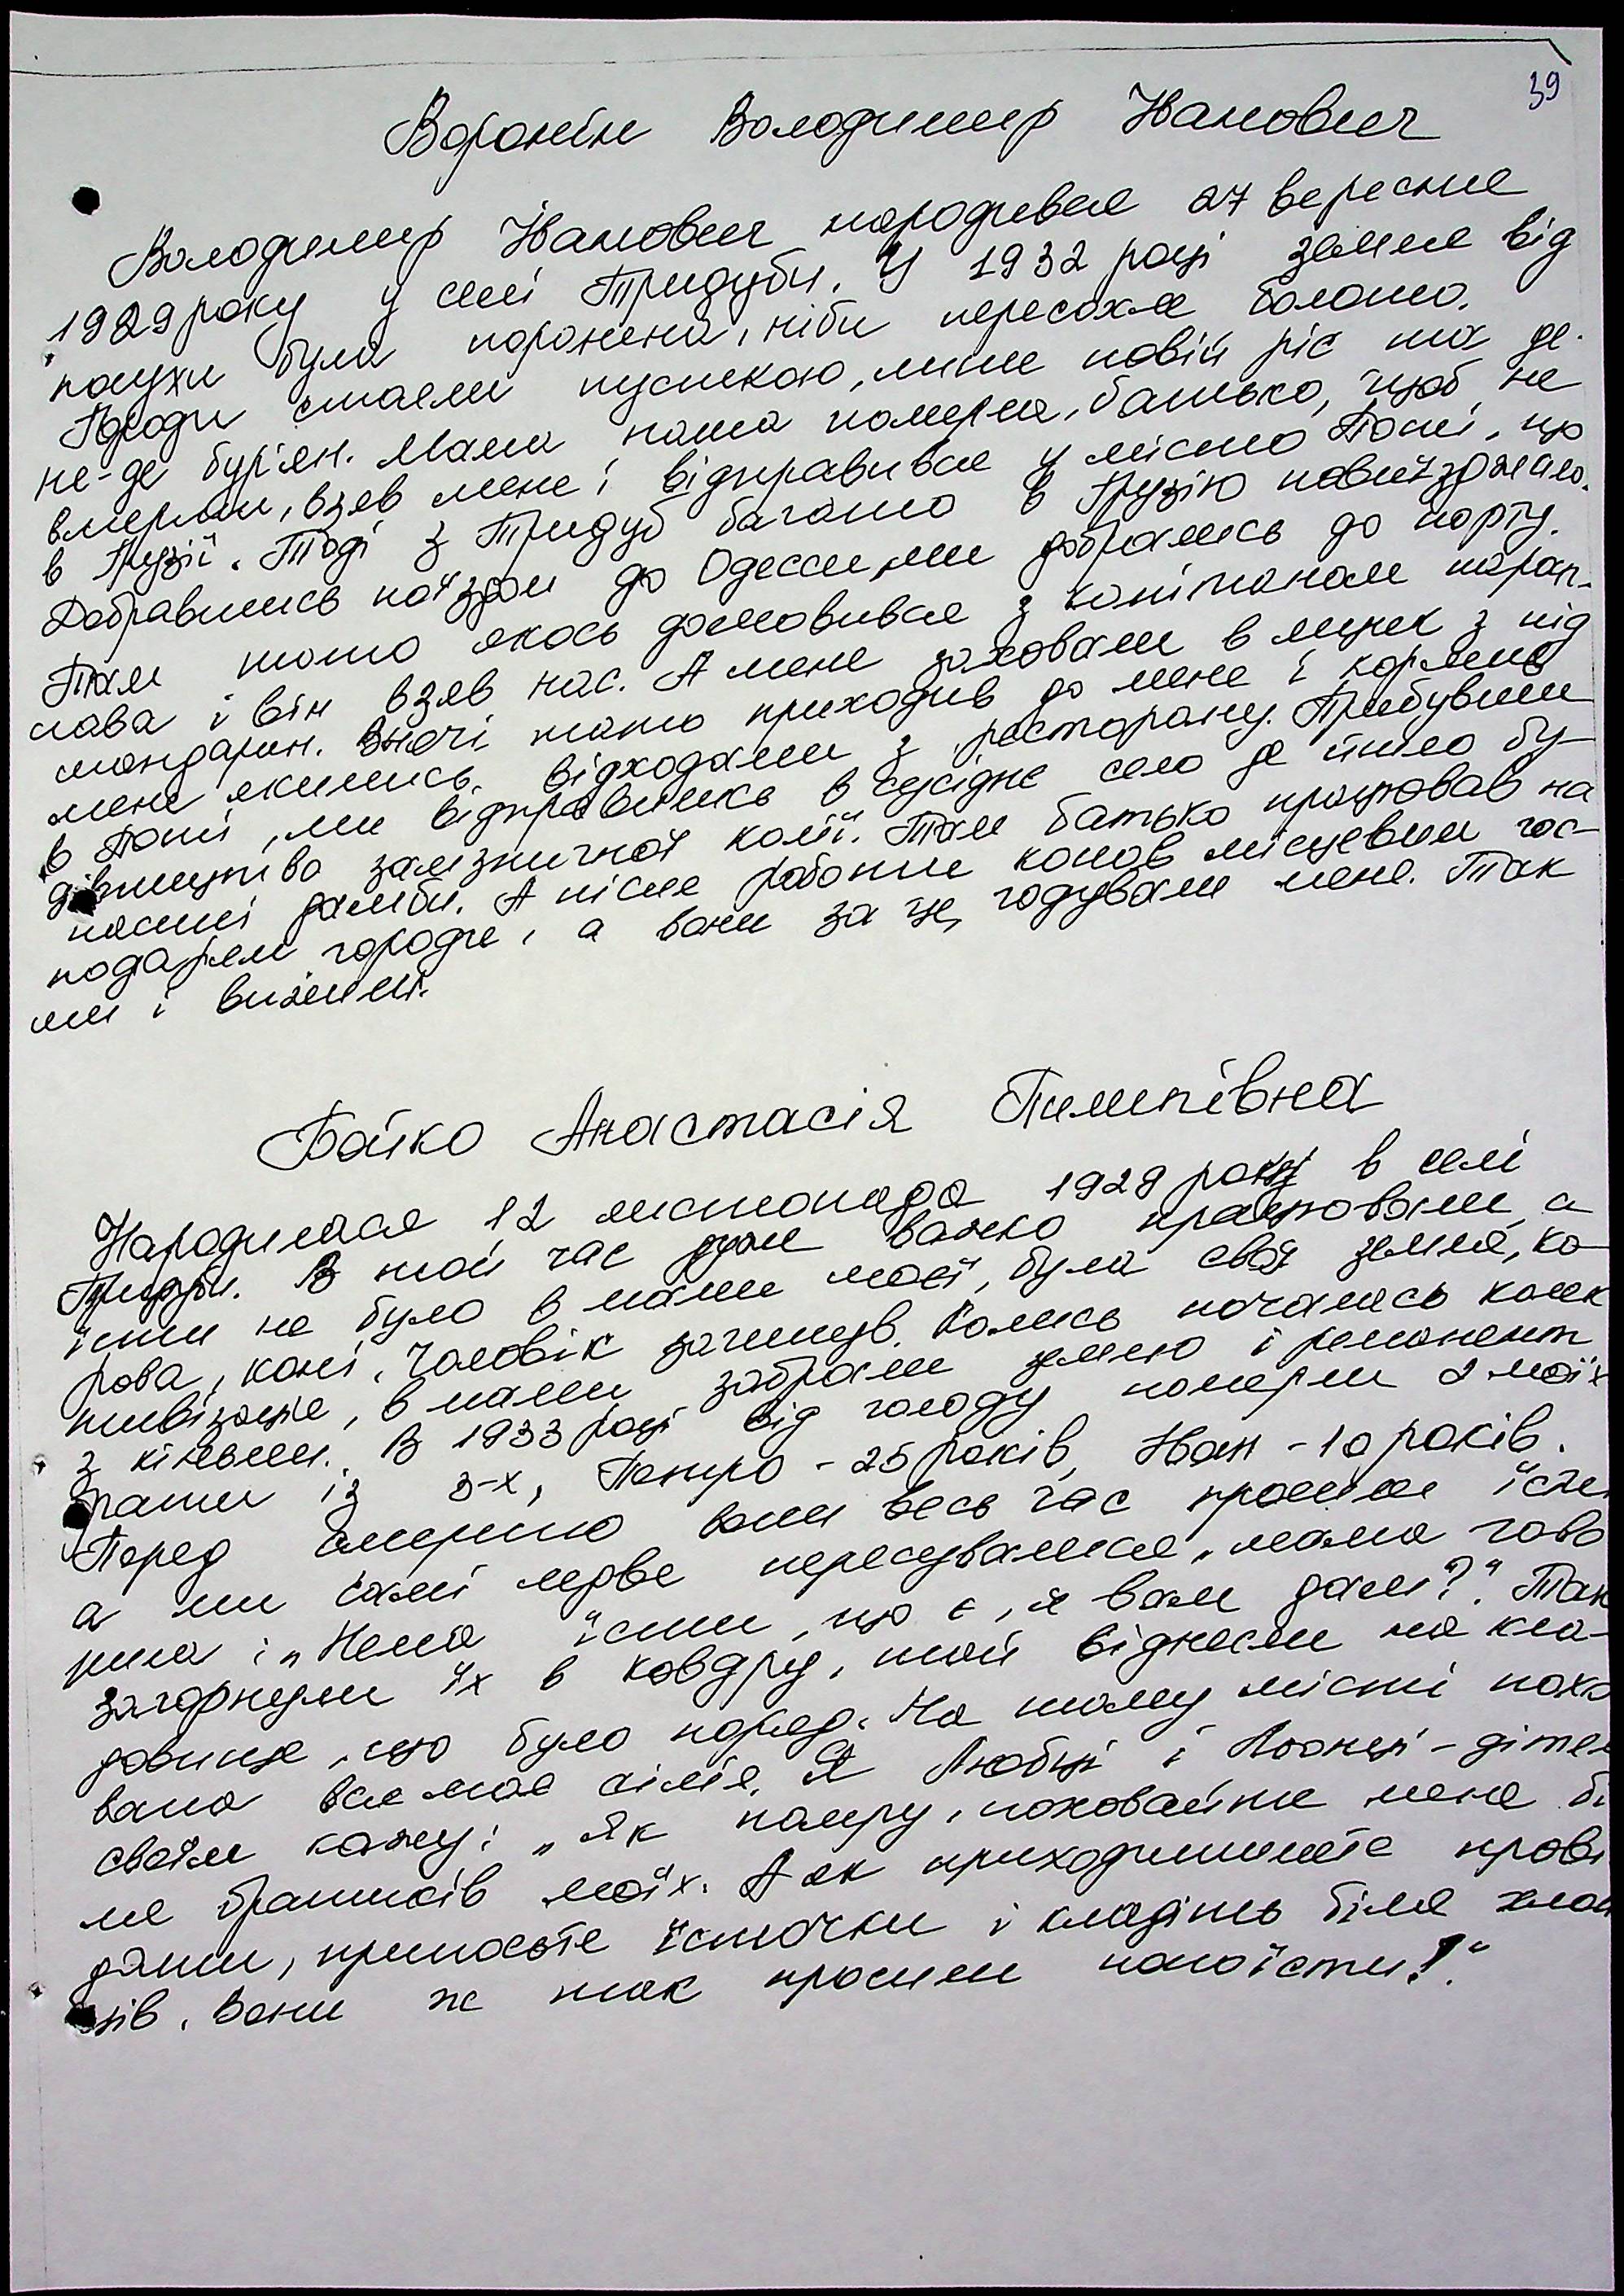 39
Воронін Володимир Іванович
Володимир Іванович народився 27 вересня
1929 року у селі Тридуби. У 1932 році земля від
посухи була порожена, ніби пересохле болото.
Городи стали пусткою, лише повій ріс та де-
не-де бур'ян. Мама наша померла, батько, щоб не
вмерли, взяв мене і відправився у місто Поті, що
в Грузії. Тоді з Тридуб багато в Грузію повиїзджало.
Добравшись поїздом до Одесси, ми добрались до порту.
Там тато якось домовився з капітаном пароп-
лава і він взяв нас. А мене заховали в ящик з під
мандарин. Вночі тато приходив до мене і кормив
мене якимись відходами з ресторану. Прибувши
в Поті, ми відправились в сусіднє село де йшло бу-
дівництво залізничної колії. Там батько працював на
насипі дамби. А після роботи копав місцевим гос-
подарям городи, а вони за це, годували мене. Так
ми і вижили.
Бойко Анастасія Пилипівна
Народилася 12 листопада 1929 року в селі
Тридуби. В той час дуже важко працювали, а
їсти не було в мами моєї, була своя земля, ко-
рова, коні, чоловік загинув. Колись почались колек
тивізація, в мами забрали землю і реманент
з кіньми. В 1933 році від голоду померли 2 моїх
брати із 3-х, Петро - 25 років, Іван - 10 років.
Перед смертю вони весь час просили їсти
а ми самі ледве пересувалися, мама гово
рила: „Нема їсти, що є, я вам дам?". Так
загорнули їх в ковдру, той віднесли на кла-
довище, що було поряд. На тому місті похо
вана вся моя сім'я. Я Любці і Льонці - дітям
своїм кажу: „Як помру, поховайте мене бі
ля братиків моїх. А як приходитимете прові
дати, приносьте їсточки і кладіть біля хлоп
ців. Вони ж так просили попоїсти!"